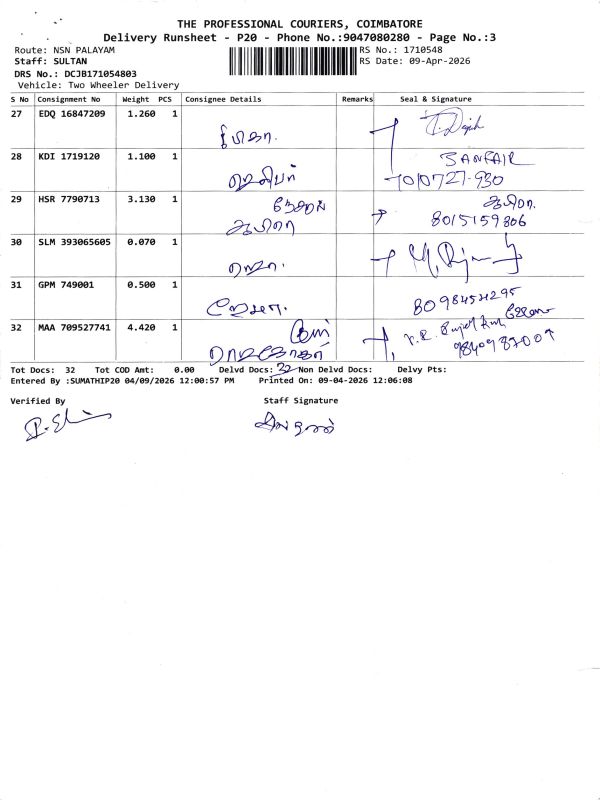 THE PROFESSIONAL COURIERS, COIMBATORE
Delivery Runsheet - P20 - Phone No.:9047080280 - Page No.:3
Route: NSN PALAYAM RS No.: 1710548
Staff: SULTAN RS Date: 09-Apr-2026
DRS No.: DCJB171054803
Vehicle: Two Wheeler Delivery
S No Consignment No Weight PCS Consignee Details Remarks Seal & Signature
27 EDQ 16847209 1.260 1
28 KDI 1719120 1.100 1 SANFAIR
7010727-930
29 HSR 7790713 3.130 1
8015159806
30 SLM 393065605 0.070 1 ராஜா.
31 GPM 749001 0.500 1
8098454295
32 MAA 709527741 4.420 1
9840987009
Tot Docs: 32 Tot COD Amt: 0.00 Delvd Docs: 32 Non Delvd Docs: Delvy Pts:
Entered By :SUMATHIP20 04/09/2026 12:00:57 PM Printed On: 09-04-2026 12:06:08
Verified By Staff Signature